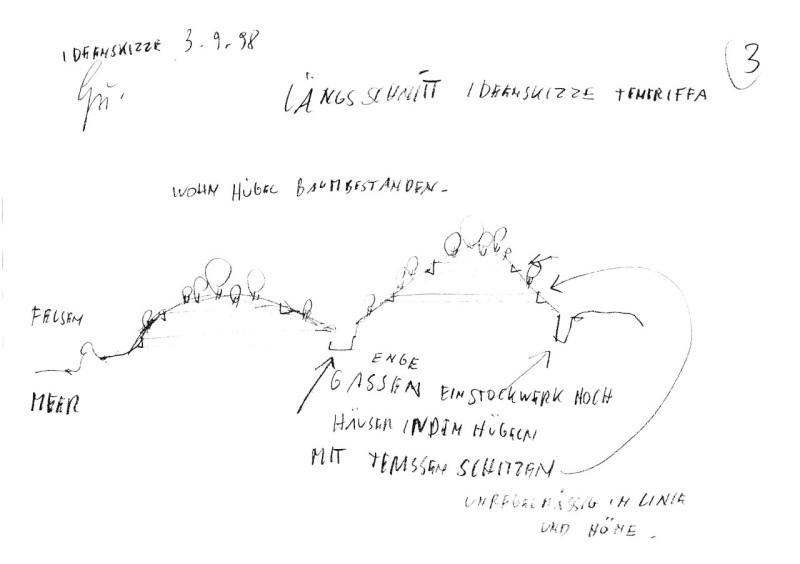 IDEENSKIZZE 3.9.98
3
LÄNGSSCHNITT IDEENSKIZZE TENERIFFA
WOHN HÜGEL BAUMBESTANDEN.
FELSEN
MEER
ENGE
GASSEN EIN STOCKWERK HOCH
HÄUSER IN DEN HÜGELN
MIT TERASSEN SCHLITZEN
UNREGELMÄSSIG IN LINIE
UND HÖHE.